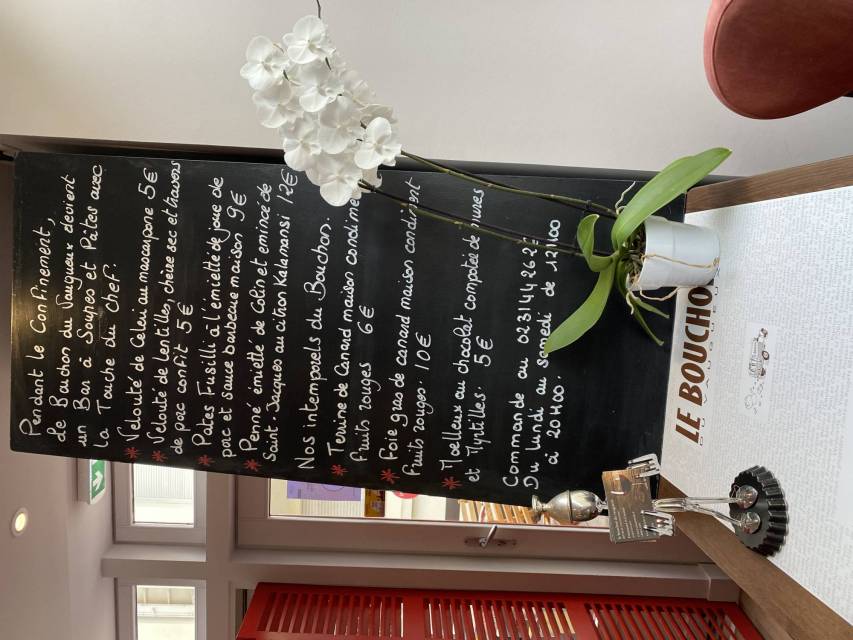 Pendant le Confinement,
de Bouchon du Vaugueux devient
un Bar à Soupes et Pâtes avec
la Touche du chef.
* Velouté de Celeri au mascarpone 5€
* Velouté de Lentilles, chèvre sec et travers
de porc confit 5€
* Pates Fusilli à l'émietté de joue de
porc et sauce barbecue maison 9€
* Penné émietté de Colin et emincé de
Saint-Jacques au citron Kalamansi 12€
Nos intemporels du Bouchon.
* Terrine de Canard maison condiment
fruits rouges 6€
* Foie gras de canard maison condiment
fruits rouges. 10€
* Moelleux au chocolat compotée de mures
et Myrtilles. 5€
Commande au 0231442626
Du lundi au samedi de 12h00
à 20H00.
LE BOUCHO
DU VAUGUEUX